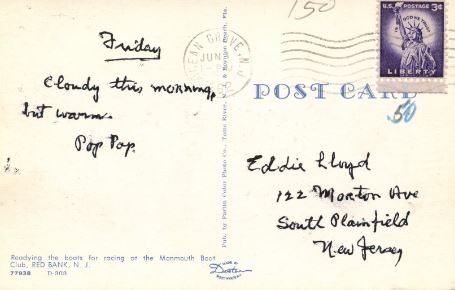 150
Friday
Cloudy this morning,
but warm.
Pop Pop.
OCEAN GROVE, N.J.
JUN
U.S. POSTAGE 3¢
IN GOD WE TRUST
LIBERTY
POST CARD
50
Eddie Lloyd
122 Morton Ave
South Plainfield
New Jersey
Readying the boats for racing at the Monmouth Boat
Club, RED BANK, N. J.
77938 D-303
MADE BY
Dexter
Pub. by Parlin Color Photo Co., Toms River, N. J. &